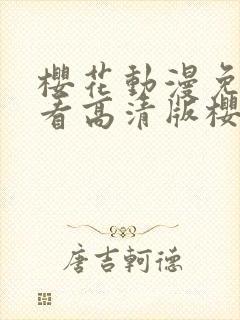 櫻花動漫免
看高清版櫻
唐吉軻德